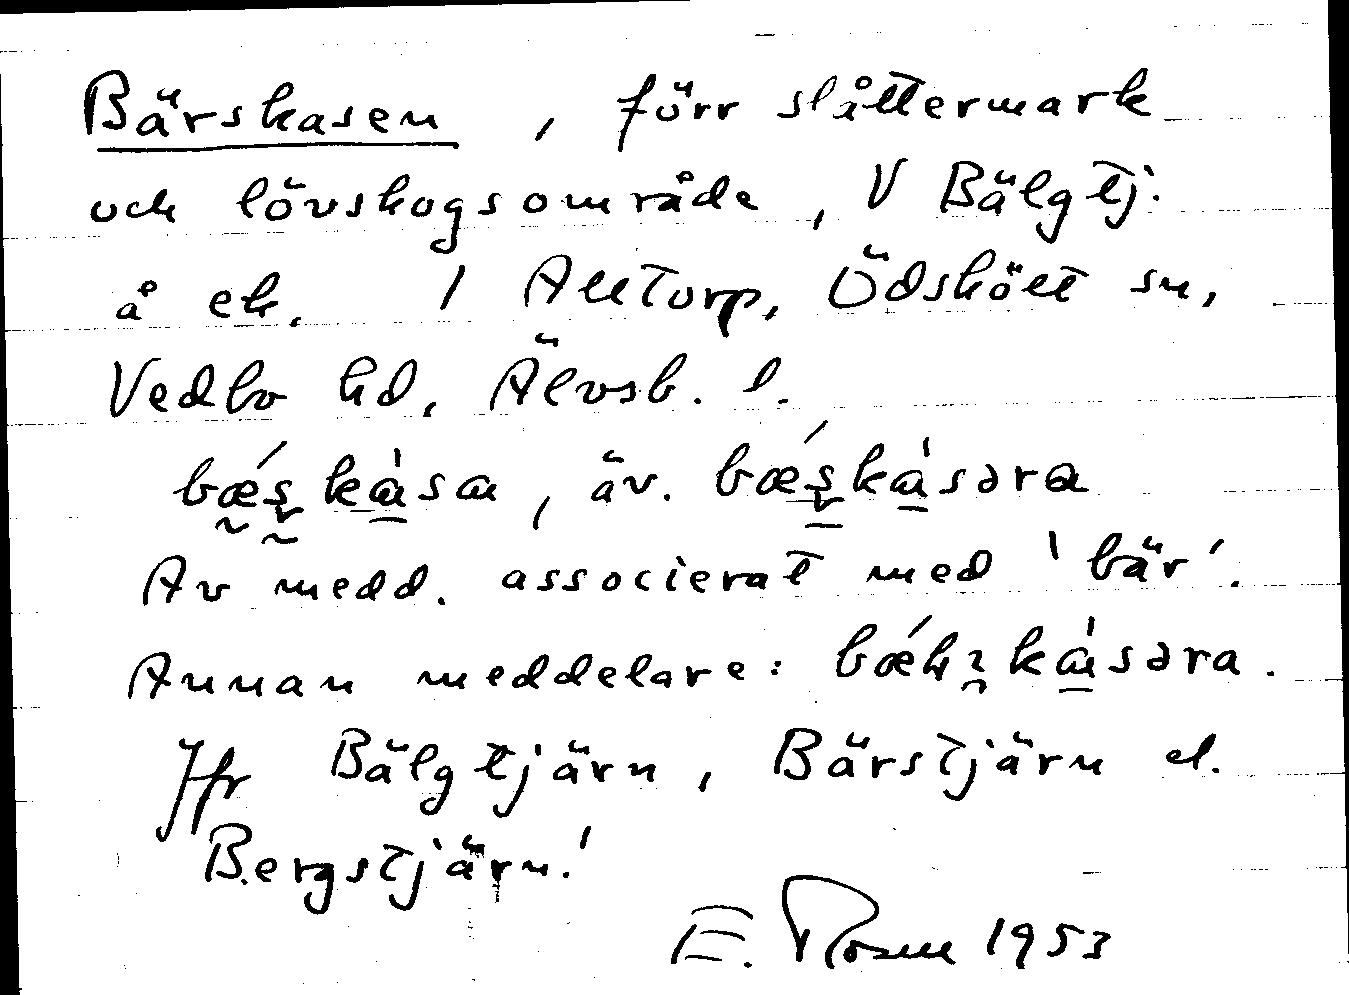 Bärskasen, förr slåttermark
och lövskogsområde, V Bälgtj.
å ek. / Alltorp, Ödskölt sn,
Vedbo hd, Älvsb. l.
bǽʂkàsa, äv. bǽʂkàsəra
Av medd. associerat med 'bär'.
Annan meddelare: kàsəra.
Jfr Bälgtjärn, Bärstjärn el.
Bergstjärn!
E. 1953